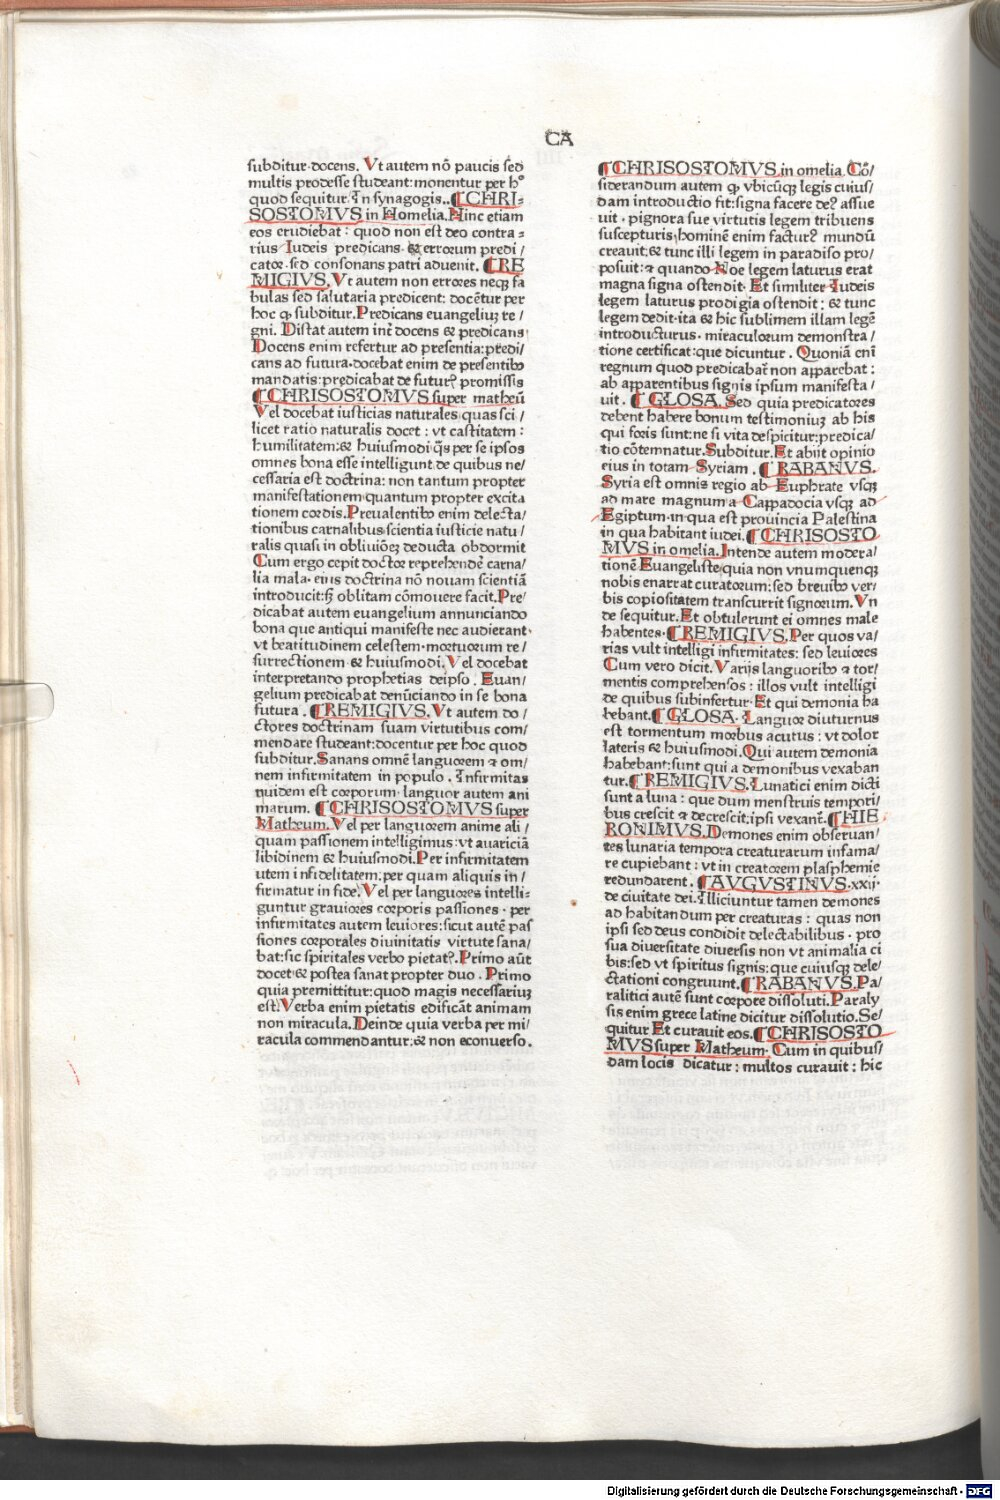 CA
subditur docens. Vt autem nō paucis sed
multis prodesse studeant: monentur per hᵒ
quod sequitur. In synagogis. ⸿CHRI-
SOSTOMVS in Homelia. Hinc etiam
eos erudiebat: quod non est deo contra-
rius Iudeis predicans & errorum predi/
cator sed consonans patri aduenit. ⸿RE
MIGIVS. Vt autem non errores neqꝫ fa
bulas sed salutaria predicent: docētur per
hoc ꝙ subditur. Predicans euangeliuꝫ re/
gni. Distat autem int̄ docens & predicans
Docens enim refertur ad presentia: predi/
cans ad futura. docebat enim de presentibꝰ
mandatis: predicabat de futurꝭ promissis
⸿CHRISOSTOMVS super matheū
Vel docebat iusticias naturales quas sci/
licet ratio naturalis docet: vt castitatem:
humilitatem: & huiusmodi q̄s per se ipsos
omnes bona esse intelligunt de quibus ne/
cessaria est doctrina: non tantum propter
manifestationem quantum propter excita
tionem cordis. Preualentibꝰ enim delecta/
tionibus carnalibus scientia iusticie natu/
ralis quasi in obliuiōeꝫ deducta obdormit
Cum ergo cepit doctor reprehendē carna/
lia mala. eius doctrina nō nouam scientiā
introducit: sꝫ oblitam cōmouere facit. Pre/
dicabat autem euangelium annunciando
bona que antiqui manifeste nec audierant
vt beatitudinem celestem. mortuorum re/
surrectionem & huiusmodi. Vel docebat
interpretando prophetias de ipso. Euan/
gelium predicabat denūciando in se bona
futura. ⸿REMIGIVS. Vt autem do/
ctores doctrinam suam virtutibus com/
mendare studeant: docentur per hoc quod
subditur. Sanans omnē languorem ⁊ om/
nem infirmitatem in populo. Infirmitas
quidem est corporum. languor autem ani
marum. ⸿CHRISOSTOMVS super
Matheum. Vel per languorem anime ali/
quam passionem intelligimus: vt auariciā
libidinem & huiusmodi. Per infirmitatem
utem infidelitatem. per quam aliquis in/
firmatur in fide. Vel per languores intelli-
guntur grauiores corporis passiones. per
infirmitates autem leuiores: sicut autē pas
siones corporales diuinitatis virtute sana/
bat: sic spiritales verbo pietatꝭ. Primo aūt
docet & postea sanat propter duo. Primo
quia premittitur: quod magis necessariuꝫ
est. Verba enim pietatis edificāt animam
non miracula. Deinde quia verba per mi/
racula commendantur: & non econuerso.
⸿CHRISOSTOMVS in omelia. Cō/
siderandum autem ꝙ vbicūqꝫ legis cuius/
dam introductio fit: signa facere deꝰ assue
uit. pignora sue virtutis legem tribuens
suscepturis hominē enim facturꝰ mundū
creauit: & tunc illi legem in paradiso pro/
posuit: ⁊ quando Noe legem laturus erat
magna signa ostendit. Et similiter Iudeis
legem laturus prodigia ostendit: & tunc
legem dedit. ita & hic sublimem illam legē
introducturus. miraculorum demonstra/
tione certificat: que dicuntur. Quoniā eni
regnum quod predicabat̄ non apparebat:
ab apparentibus signis ipsum manifesta/
uit. ⸿GLOSA. Sed quia predicatores
debent habere bonum testimoniuꝫ ab his
qui foris sunt: ne si vita despicitur: predica/
tio cōtemnatur. Subditur. Et abiit opinio
eius in totam Syriam. ⸿RABANVS.
Syria est omnis regio ab Euphrate vsqꝫ
ad mare magnum a Cappadocia vsqꝫ ad
Egiptum. in qua est prouincia Palestina
in qua habitant iudei. ⸿CHRISOSTO
MVS in omelia. Intende autem modera/
tionē Euangeliste quia non vnumquenqꝫ
nobis enarrat curatorum: sed breuibꝰ ver/
bis copiositatem transcurrit signorum. Vn
de sequitur. Et obtulerunt ei omnes male
habentes. ⸿REMIGIVS. Per quos va/
rias vult intelligi infirmitates: sed leuiores
Cum vero dicit. Varijs languoribꝰ ⁊ tor/
mentis comprehensos: illos vult intelligi
de quibus subinfertur. Et qui demonia ha
bebant. ⸿GLOSA. Languor diuturnus
est tormentum morbus acutus: vt dolor
lateris & huiusmodi. Qui autem demonia
habebant: sunt qui a demonibus vexaban
tur. ⸿REMIGIVS. Lunatici enim dicti
sunt a luna: que dum menstruis tempori/
bus crescit ⁊ decrescit: ipsi vexant̄. ⸿HIE
RONIMVS. Demones enim obseruan/
tes lunaria tempora creaturarum infama/
re cupiebant: vt in creatorem plasphemie
redundarent. ⸿AVGVSTINVS. xxij.
de ciuitate dei. Illiciuntur tamen demones
ad habitandum per creaturas: quas non
ipsi sed deus condidit delectabilibus. pro
sua diuersitate diuersis non vt animalia ci
bis: sed vt spiritus signis: que cuiusqꝫ dele/
ctationi congruunt. ⸿RABANVS. Pa/
ralitici autē sunt corpore dissoluti. Paraly
sis enim grece latine dicitur dissolutio. Se/
quitur Et curauit eos. ⸿CHRISOSTO
MVS super Matheum. Cum in quibus/
dam locis dicatur: multos curauit: hic
Digitalisierung gefördert durch die Deutsche Forschungsgemeinschaft - DFG